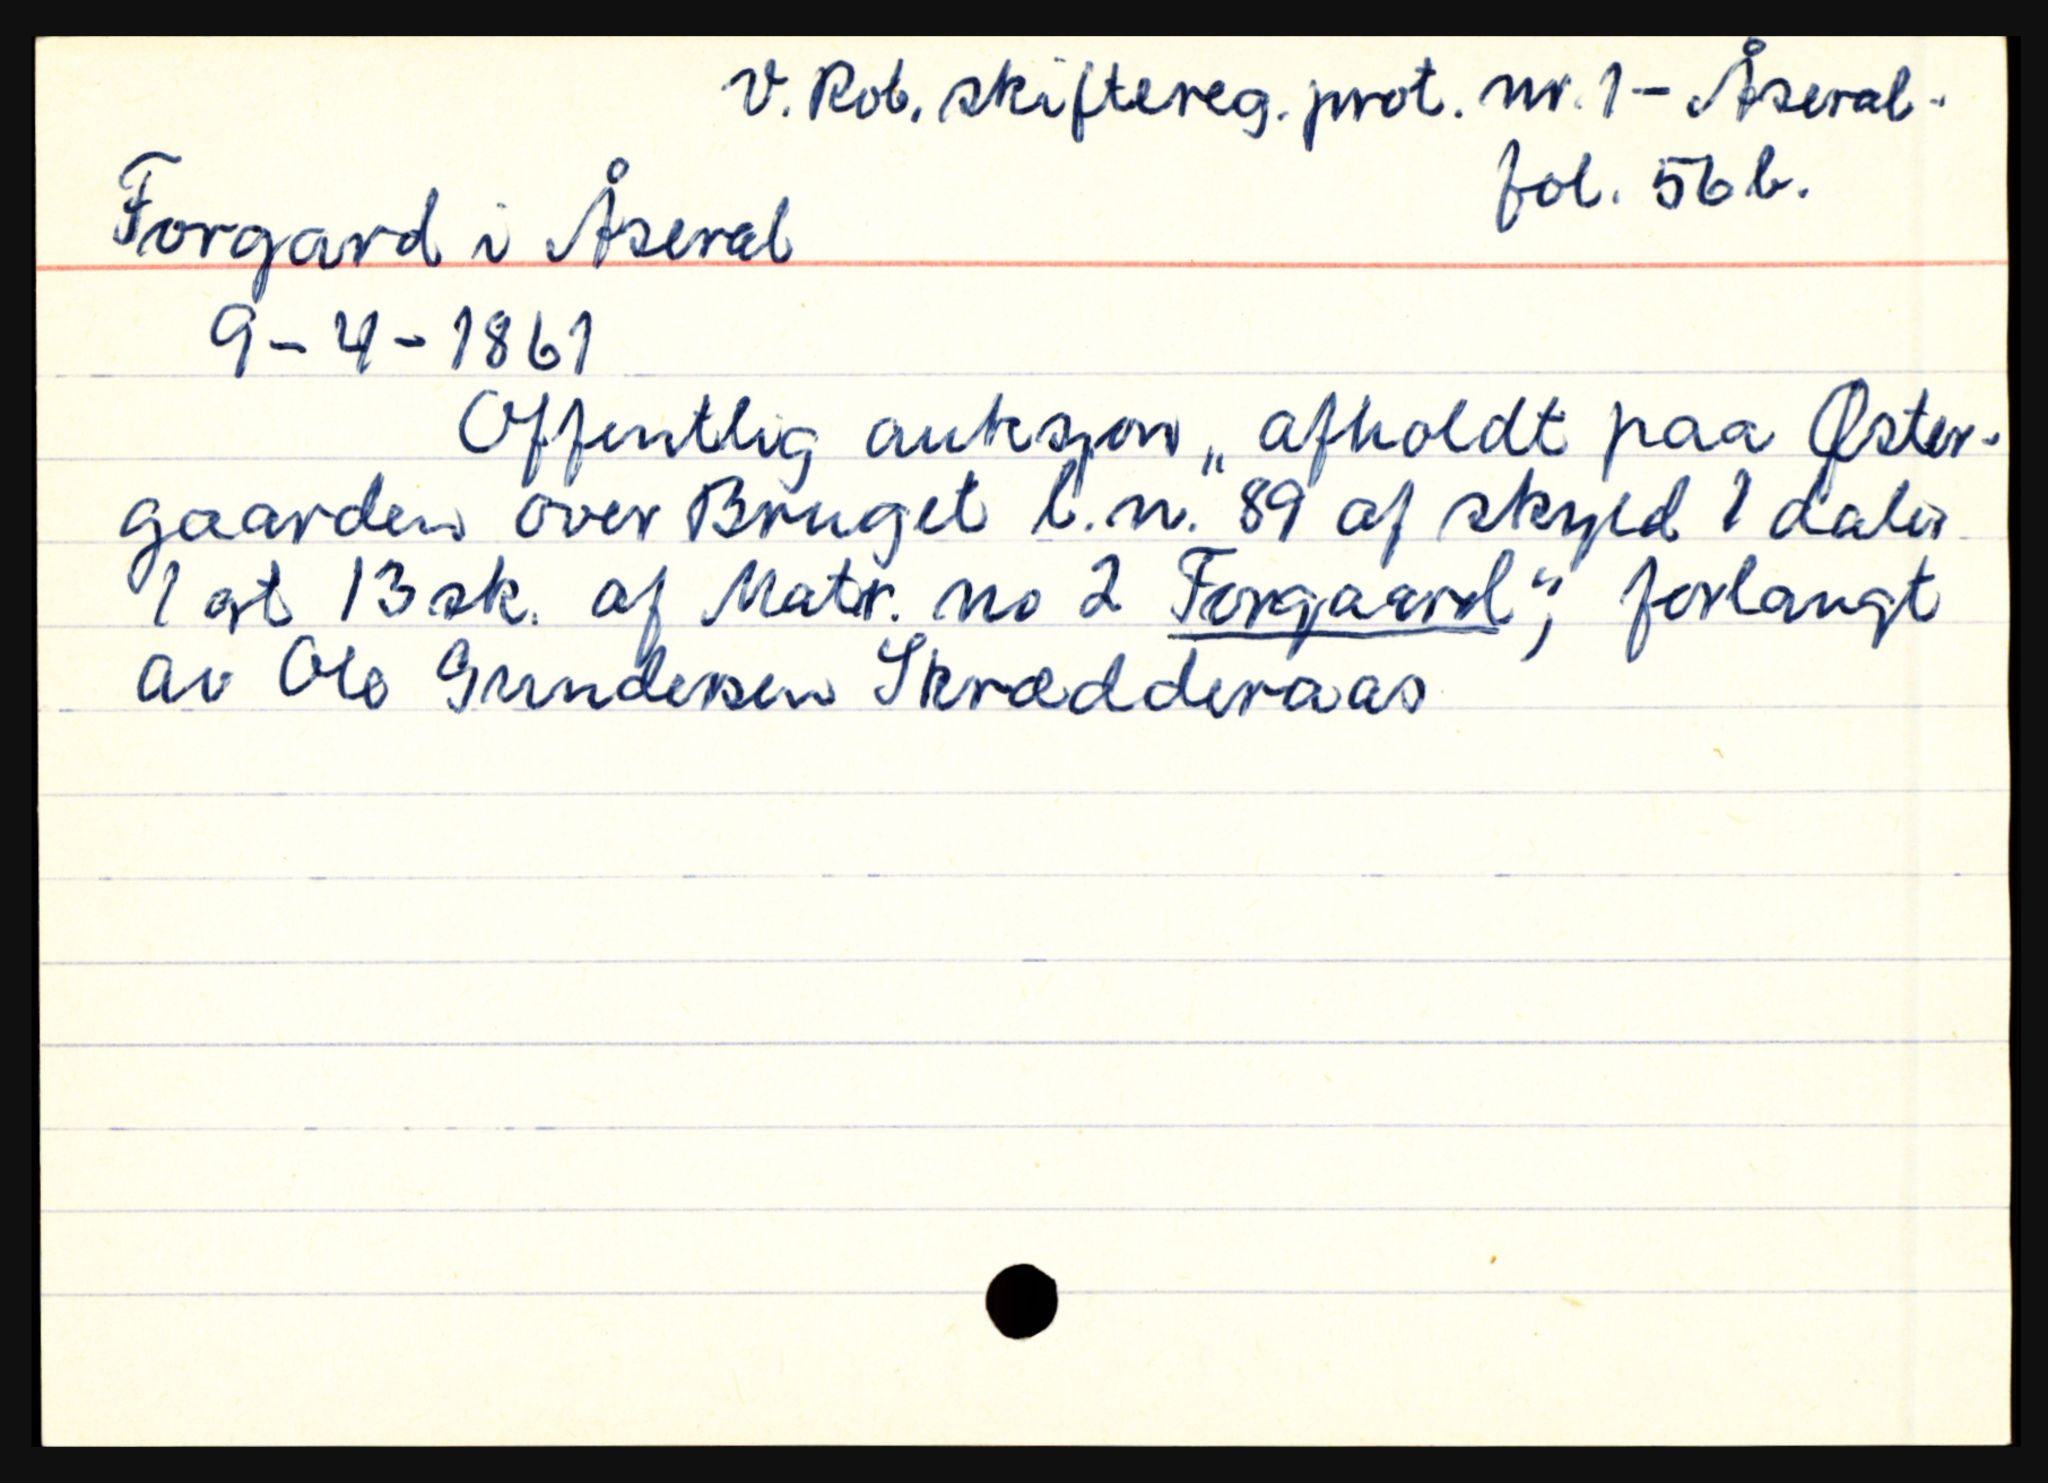 V. Rob. skiftereg. prot. nr. 1 - Åseral.
fol. 56 b.
Forgard i Åseral
9-4-1861
Offentlig auksjon „afholdt paa Øster-
gaarden over Bruget l.n. 89 af skyld 1 daler
1 ort 13 sk. af Matr. no 2 Forgaard", forlangt
av Ole Gundersen Skrædderaas